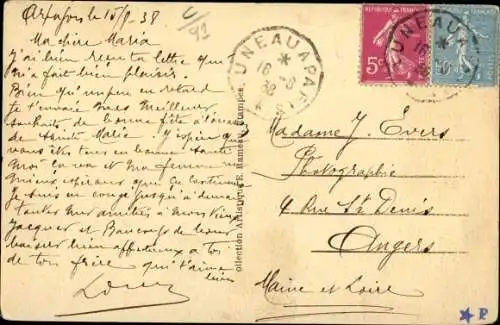 Arpajon le 15/9 - 38
Ma chère Maria
J'ai bien reçu ta lettre qui
m'a fait bien plaisir.
Bien qu'un peu en retard
je t'envoie mes meilleurs
souhaits de bonne fête à l'occasion
de Sainte Marie. J'espère que
vous êtes tous en bonne santé
moi ça va et ma femme
mieux espérons que ça continue
Je suis en congé jusqu'à demain
toutes mes amitiés à mon vieux
Jacques et Beaucoup de
baisers bien affectueux à toi
de ton frère qui t'aime
bien
Louis
C/92
UNEAU ARPAJON
16 - 9
38
RÉPUBLIQUE FRANÇAISE
5c
POSTES
UNEAU
16 - 9
38
50
Collection Artistique E. Rameau, Étampes
Madame J. Evers
Photographie
4 Rue St Denis
Angers
Maine et Loire
P